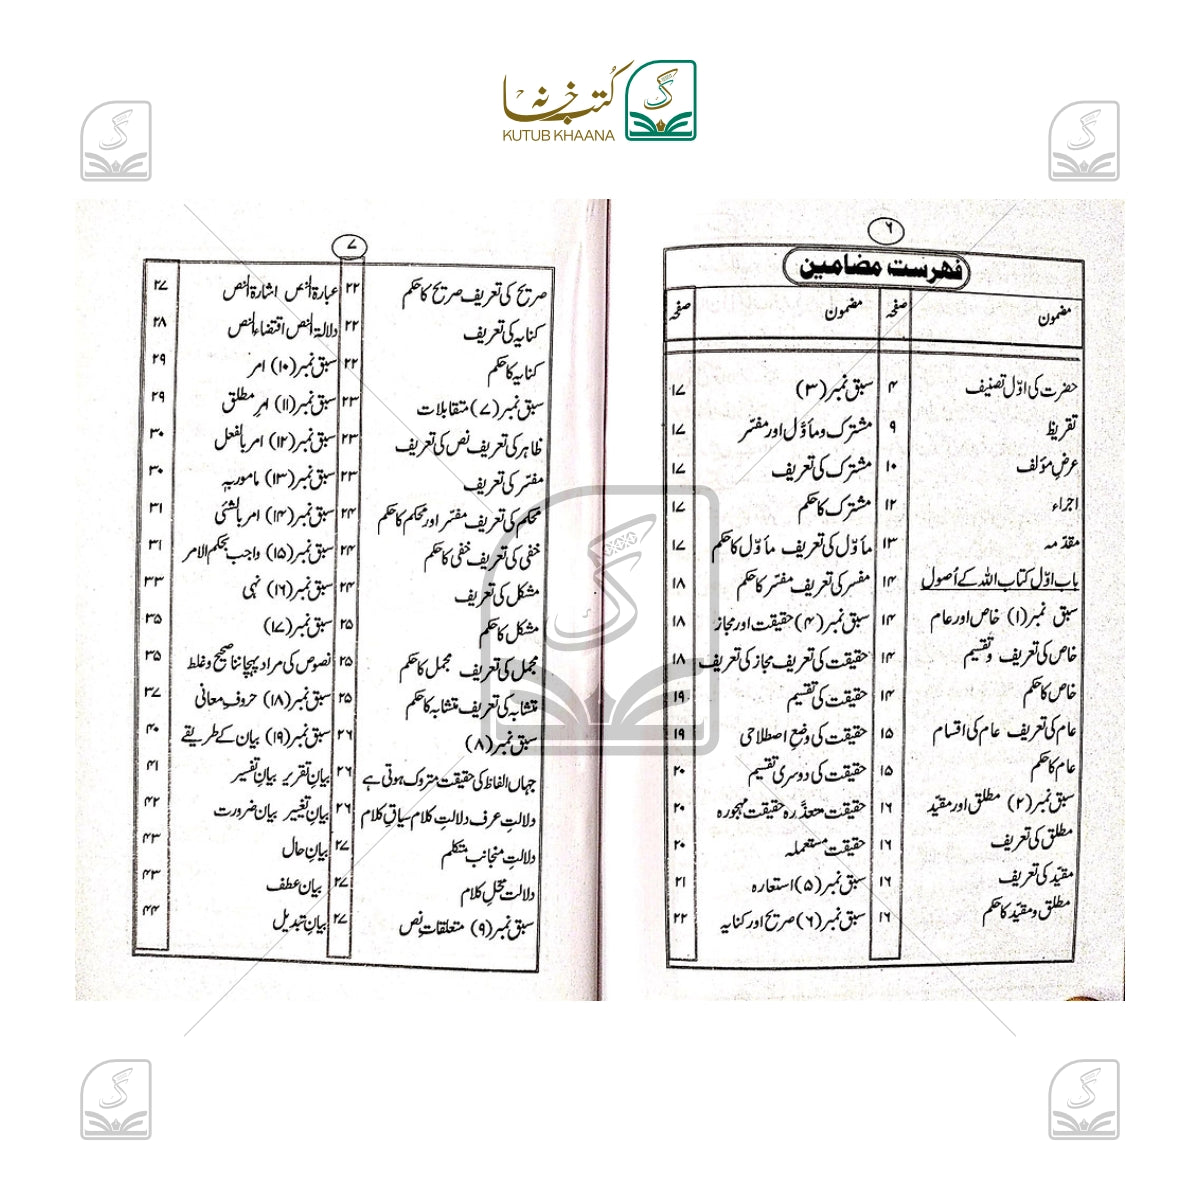 کتب خانہ
KUTUB KHAANA
۶
فہرست مضامین
مضمون صفحہ مضمون صفحہ
حضرت کی اوّل تصنیف ۴ سبق نمبر (۳) ۱۷
تقریظ ۹ مشترک و مأوّل اور مفسّر ۱۷
عرض مؤلف ۱۰ مشترک کی تعریف ۱۷
اجراء ۱۲ مشترک کا حکم ۱۷
مقدّمہ ۱۳ مأوّل کی تعریف مأوّل کا حکم ۱۷
باب اوّل کتاب اللہ کے اُصول ۱۴ مفسر کی تعریف مفسّر کا حکم ۱۸
سبق نمبر (۱) خاص اور عام ۱۴ سبق نمبر (۴) حقیقت اور مجاز ۱۸
خاص کی تعریف و تقسیم ۱۴ حقیقت کی تعریف مجاز کی تعریف ۱۸
خاص کا حکم ۱۴ حقیقت کی تقسیم ۱۹
عام کی تعریف عام کی اقسام ۱۵ حقیقت کی وضعِ اصطلاحی ۱۹
عام کا حکم ۱۵ حقیقت کی دوسری تقسیم ۲۰
سبق نمبر (۲) مطلق اور مقیّد ۱۶ حقیقت متعذّرہ حقیقت مہجورہ ۲۰
مطلق کی تعریف ۱۶ حقیقت مستعملہ ۲۰
مقیّد کی تعریف ۱۶ سبق نمبر (۵) استعارہ ۲۱
مطلق و مقیّد کا حکم ۱۶ سبق نمبر (۶) صریح اور کنایہ ۲۲
۷
صریح کی تعریف صریح کا حکم ۲۲ عبارۃ النص اشارۃ النص ۲۷
کنایہ کی تعریف ۲۲ دلالۃ النص اقتضاء النص ۲۸
کنایہ کا حکم ۲۲ سبق نمبر (۱۰) امر ۲۹
سبق نمبر (۷) متقابلات ۲۳ سبق نمبر (۱۱) امرِ مطلق ۲۹
ظاہر کی تعریف نص کی تعریف ۲۳ سبق نمبر (۱۲) امر بالفعل ۳۰
مفسّر کی تعریف ۲۳ سبق نمبر (۱۳) مامور بہٖ ۳۰
محکم کی تعریف مفسّر اور محکم کا حکم ۲۴ سبق نمبر (۱۴) امر بالشئی ۳۱
خفی کی تعریف خفی کا حکم ۲۴ سبق نمبر (۱۵) واجب بحکم الامر ۳۱
مشکل کی تعریف ۲۴ سبق نمبر (۱۶) نہی ۳۳
مشکل کا حکم ۲۵ سبق نمبر (۱۷) ۳۵
مجمل کی تعریف مجمل کا حکم ۲۵ نصوص کی مراد پہچاننا صحیح و غلط ۳۵
متشابہ کی تعریف متشابہ کا حکم ۲۵ سبق نمبر (۱۸) حروفِ معانی ۳۷
سبق نمبر (۸) ۲۶ سبق نمبر (۱۹) بیان کے طریقے ۴۰
جہاں الفاظ کی حقیقت متروک ہوتی ہے ۲۶ بیانِ تقریر بیانِ تفسیر ۴۱
دلالتِ عرف دلالتِ کلام سیاقِ کلام ۲۶ بیانِ تغییر بیان ضرورت ۴۲
دلالتِ منجانب متکلم ۲۷ بیانِ حال ۴۳
دلالت محلِ کلام ۲۷ بیان عطف ۴۳
سبق نمبر (۹) متعلقاتِ نص ۲۷ بیانِ تبدیل ۴۴